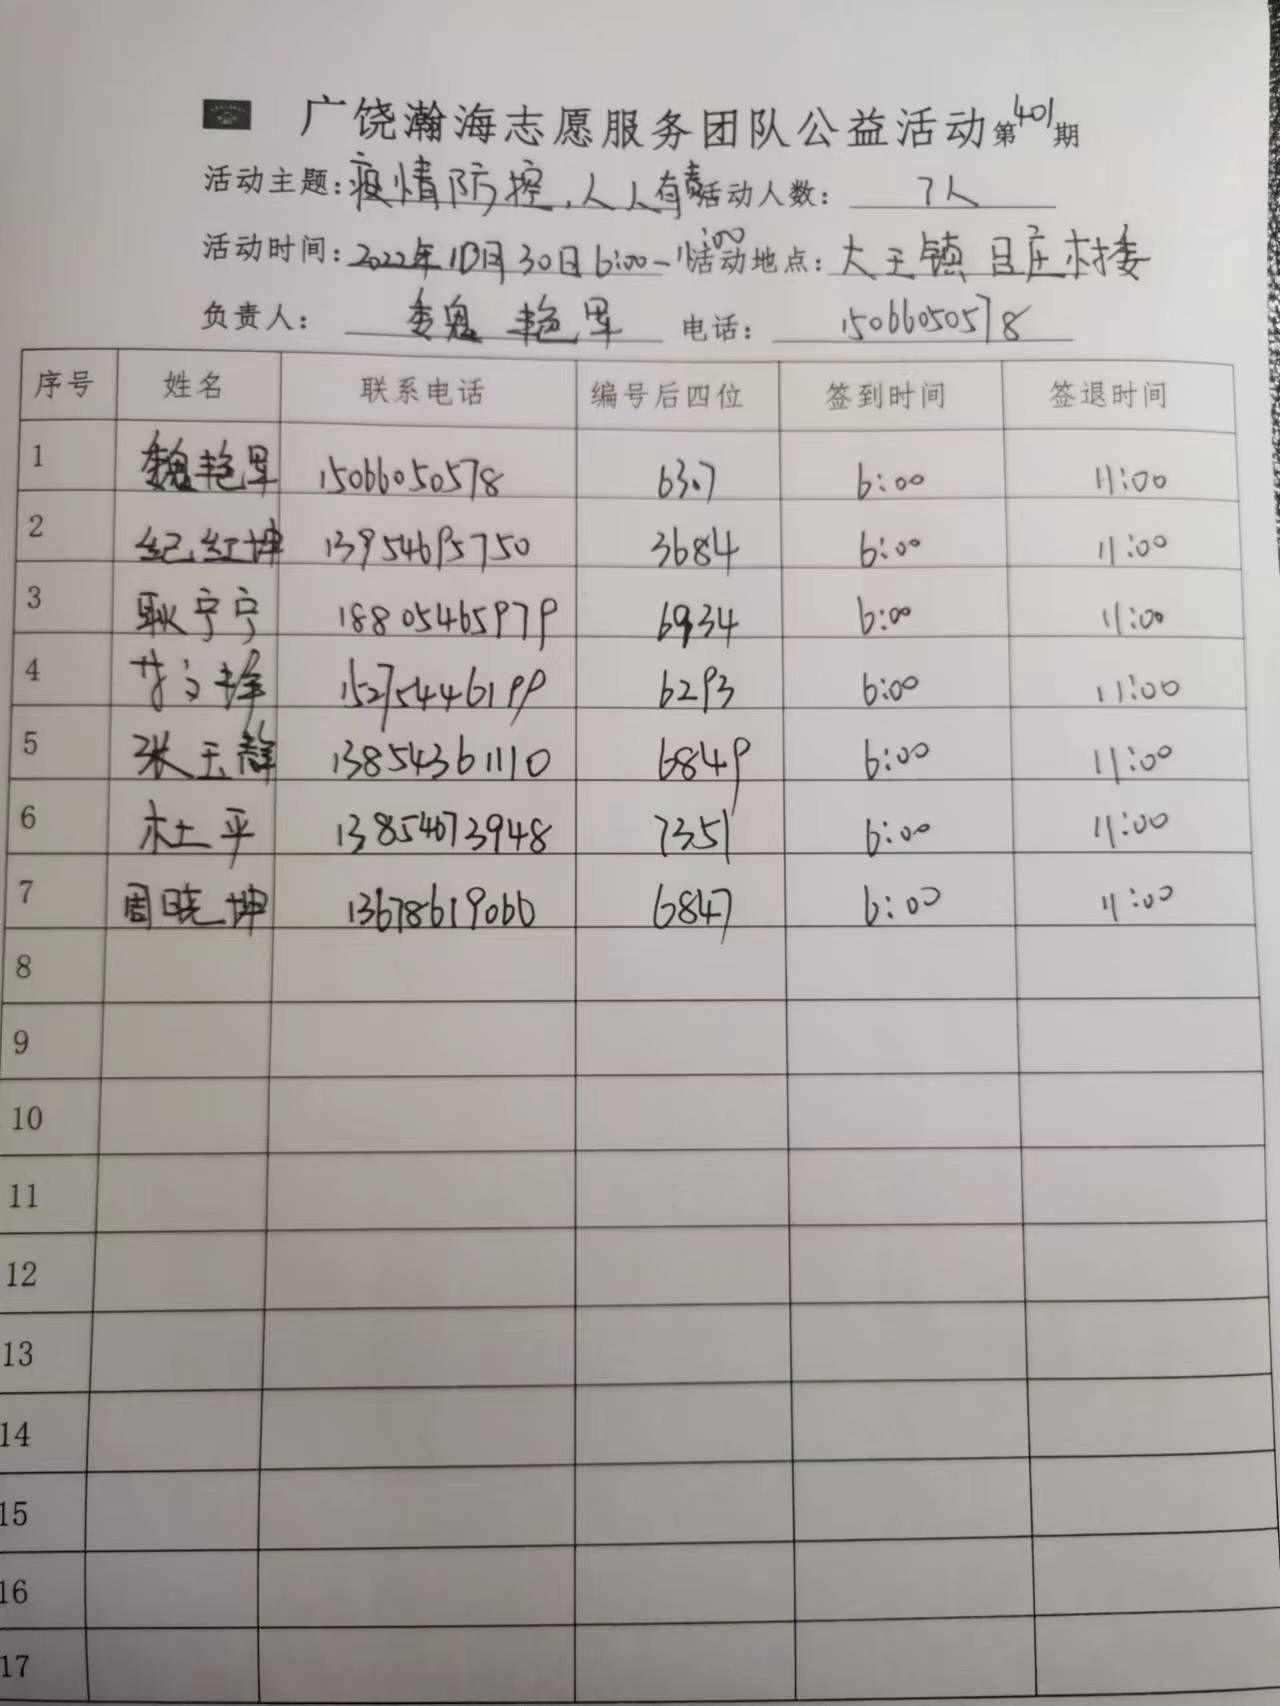 广饶瀚海志愿服务团队公益活动第401期
活动主题:疫情防控,人人有责 活动人数: 7人
活动时间:2022年10月30日6:00-11:00 活动地点:大王镇吕庄村委
负责人: 魏艳军 电话: 15066050578
序号 姓名 联系电话 编号后四位 签到时间 签退时间
1 魏艳军 15066050578 6307 6:00 11:00
2 纪红坤 13954695750 3684 6:00 11:00
3 耿宁宁 18805465979 6934 6:00 11:00
4 15275446199 6293 6:00 11:00
5 张玉静 13854361110 6849 6:00 11:00
6 杜平 13854673948 7351 6:00 11:00
7 周晓坤 13678619060 6847 6:00 11:00
8
9
10
11
12
13
14
15
16
17